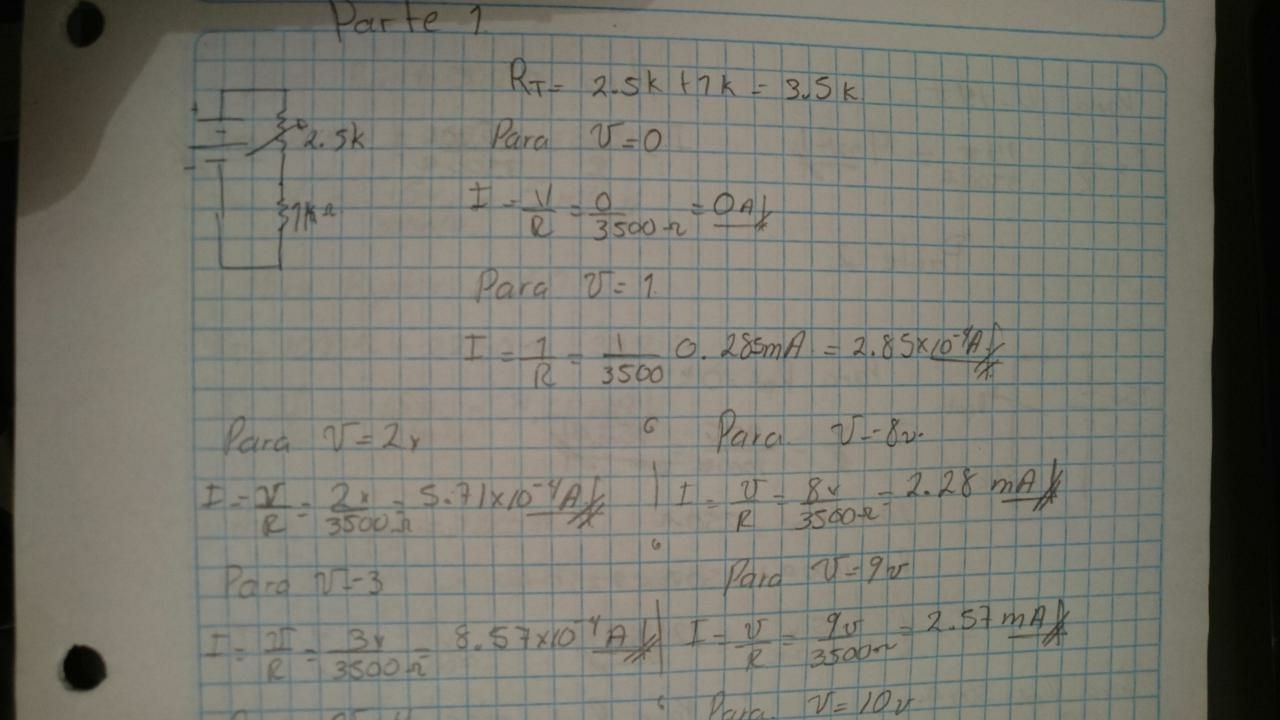 Parte 1
RT = 2.5k + 1k = 3.5k
2.5k
1kΩ
Para V=0
I = V/R = 0/3500Ω = 0A
Para V=1
I = 1/R = 1/3500 0.285mA = 2.85x10⁻⁴A
Para V=2v
I = V/R = 2v/3500Ω = 5.71x10⁻⁴A
Para V=3
I = V/R = 3v/3500Ω = 8.57x10⁻⁴A
Para V=8v.
I = V/R = 8v/3500Ω = 2.28 mA
Para V=9v
I = V/R = 9v/3500Ω = 2.57 mA
Para V=10v